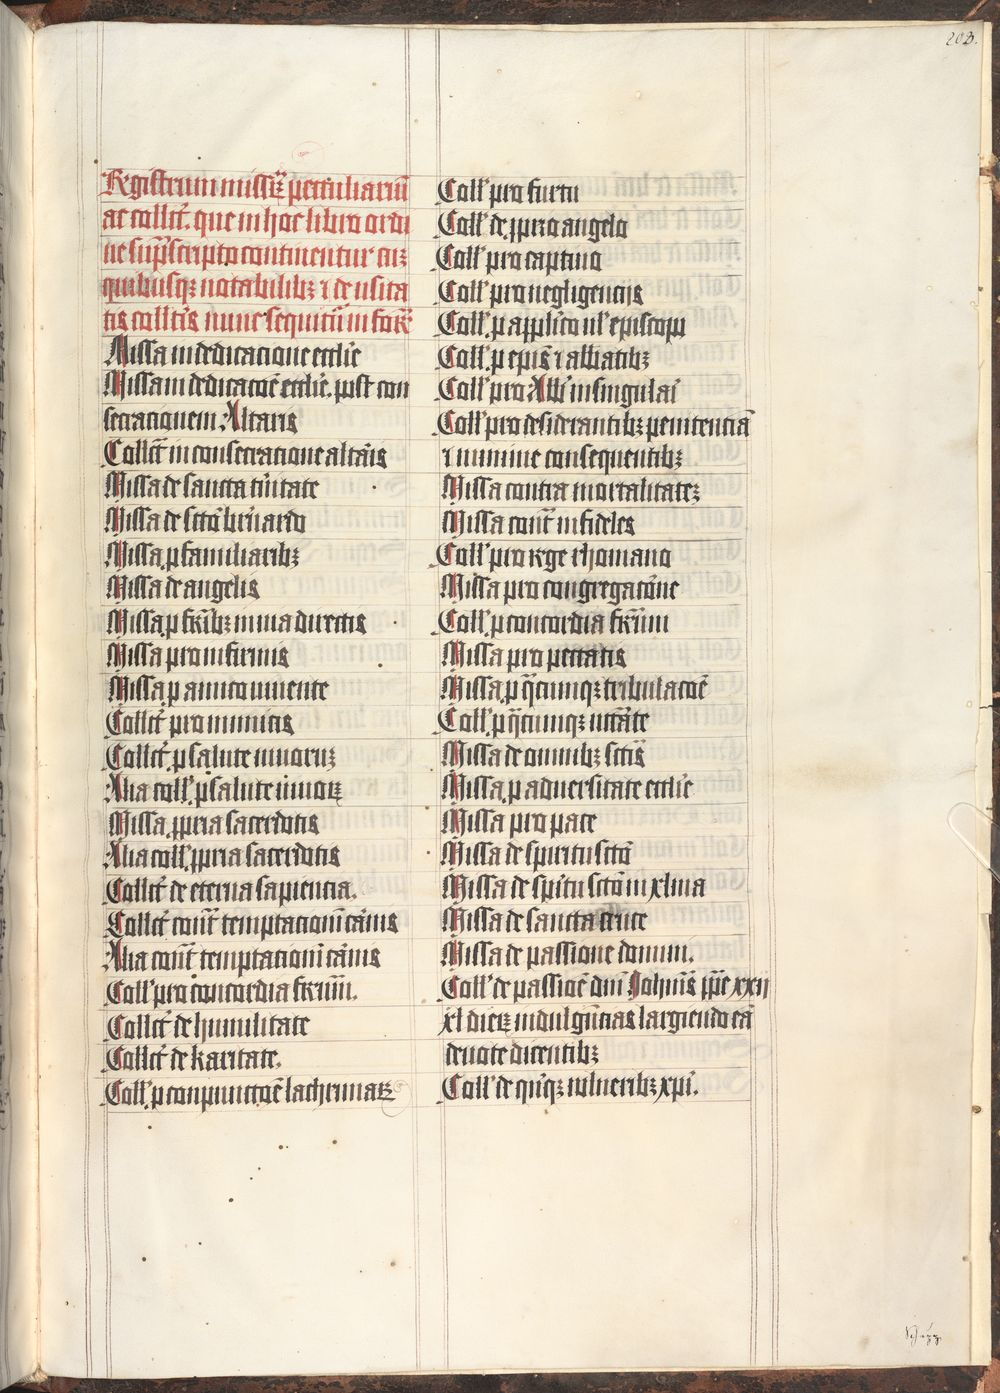 203.
Registrum missaꝝ peculiariū
ac collcͣꝝ. que in hoc libro ordi
ne sup̄scripto continentur cūz
quibusqꝫ notabilibꝫ ⁊ de usita
tis collctīs nunc sequitur in forͣ
Missa in dedicacione eccłie
Missa in dedicacōe eccłie. post con
secracionem Altaris
Collcͣ in consecracione altāris
Missa de sancta trinitate
Missa de sctō bernardo
Missa ꝓ familiaribꝫ
Missa de angelis
Missa ꝓ frībꝫ in uia directis
Missa pro infirmis
Missa ꝓ amico uiuente
Collcͣ pro inimicis
Collcͣ ꝓ salute uiuoruꝫ
Alia coll' ꝓ salute uiuoꝝ
Missa ꝓpria sacerdotis
Alia coll' ꝓpria sacerdotis
Collcͣ de eterna sapiencia.
Collcͣ contͣ temptacionē cārnis
Alia contͣ temptacionē cārnis
Coll' pro concordia frūm.
Collcͣ de humilitate
Collcͣ de karitate.
Coll' ꝓ conpunctōe lacherimaꝝ
Coll' pro furtu
Coll' de ꝓprio angelo
Coll' pro captiuo
Coll' pro negligencijs
Coll' ꝓ applico ul' episcopu
Coll' ꝓ epīs ⁊ abbatibꝫ
Coll' pro Abbē in singulāi
Coll' pro desiderantibꝫ penitenciā
⁊ minime consequentibꝫ
Missa contra mortalitateꝫ
Missa contͣ infideles
Coll' pro rege rhomano
Missa pro congregacōne
Coll' ꝓ concordia frūm
Missa pro peccatis
Missa ꝓ qͣcumqꝫ tribulacōe
Coll' ꝓ qͣcumqꝫ nēcitate
Missa de omnibꝫ sctīs
Missa ꝓ aduersitate eccłie
Missa pro pace
Missa de spiritu sctō
Missa de spūtu sctō in xlma
Missa de sancta cruce
Missa de passione domini.
Coll' de passiōe dnī Johnīs ꝑpe xxij
xl dieꝝ indulgēncias largiendo eā
deuote dicentibꝫ
Coll' de quīqꝫ uulneribꝫ xpī.